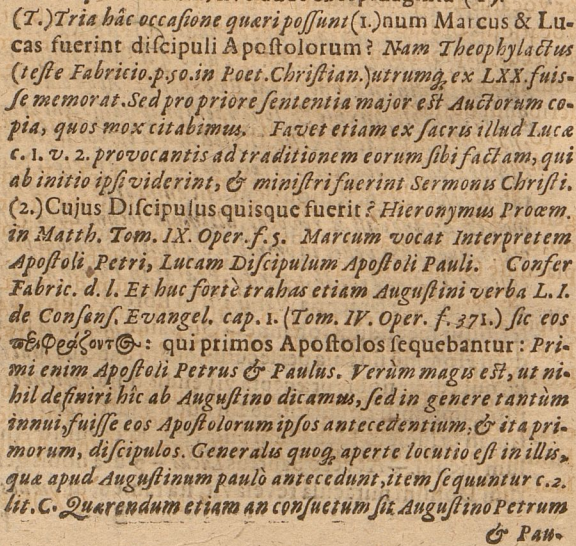 (T.) Tria hâc occaſione quæri poſſunt (1.) num Marcus & Lu-
cas fuerint diſcipuli Apoſtolorum? Nam Theophylactus
(teſte Fabricio.p.50.in Poet.Chriſtian.) utrumq; ex LXX.fuiſ-
ſe memorat. Sed pro priore ſententia major est Auctorum co-
pia, quos mox citabimus. Favet etiam ex ſacris illud Lucæ
c. 1. v. 2. provocantis ad traditionem eorum ſibi factam, qui
ab initio ipſi viderint, & miniſtri fuerint Sermonis Chriſti.
(2.) Cujus Diſcipulus quisque fuerit? Hieronymus Proœm.
in Matth. Tom. IX. Oper. f. 5. Marcum vocat Interpretem
Apoſtoli Petri, Lucam Diſcipulum Apoſtoli Pauli. Confer
Fabric. d. l. Et huc fortè trahas etiam Auguſtini verba L. I.
de Conſenſ. Evangel. cap. 1. (Tom. IV. Oper. f. 371.) ſic eos
περιφράζοντ@: qui primos Apoſtolos ſequebantur: Pri-
mi enim Apoſtoli Petrus & Paulus. Verùm magis eſt, ut ni-
hil definiri hîc ab Auguſtino dicamus, ſed in genere tantùm
innui, fuiſſe eos Apoſtolorum ipſos antecedentium, & ita pri-
morum, diſcipulos. Generalis quoq; aperte locutio eſt in illis,
quæ apud Auguſtinum paulò antecedunt, item ſequuntur c. 2.
lit. C. Quærendum etiam an conſuetum ſit Auguſtino Petrum
& Pau-